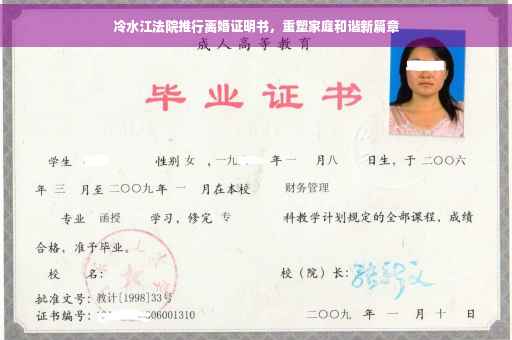 冷水江法院推行离婚证明书，重塑家庭和谐新篇章
成人高等教育
毕业证书
学生 性别 女 ，一九 年 一 月 八 日生，于 二〇〇六
年 三 月至 二〇〇九 年 一 月在本校 财务管理
专业 函授 学习，修完 专 科教学计划规定的全部课程，成绩
合格，准予毕业。
校 名： 校（院）长：
批准文号：教计[1998]33号
证书编号： 06001310 二〇〇九 年 一 月 十 日